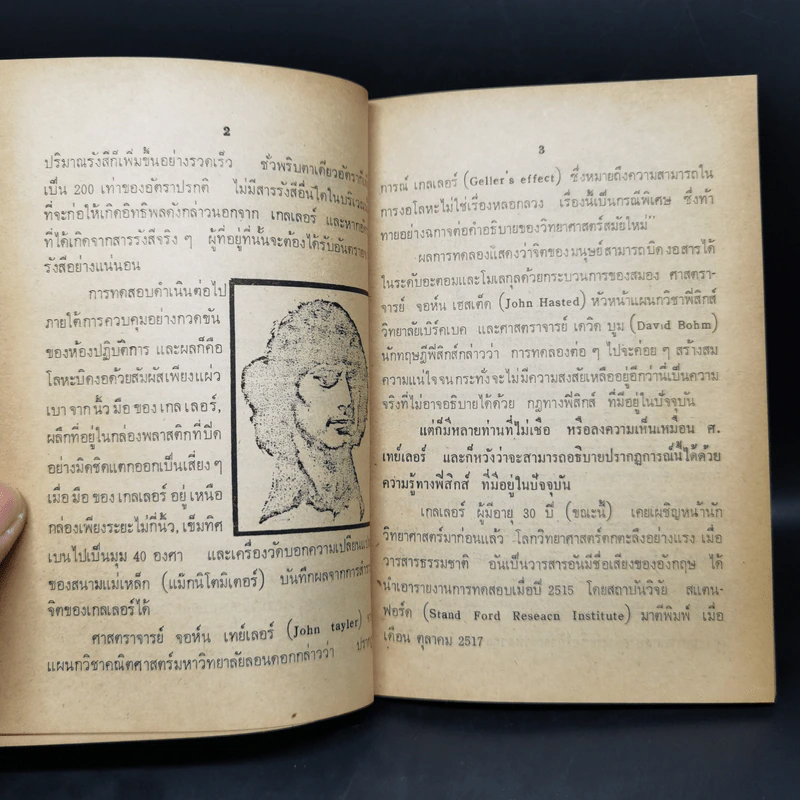 2
ปริมาณรังสีก็เพิ่มขึ้นอย่างรวดเร็ว ชั่วพริบตาเดียวอัตราก็
เป็น 200 เท่าของอัตราปรกติ ไม่มีสารรังสีอื่นใดในบริเวณ
ที่จะก่อให้เกิดอิทธิพลดังกล่าวนอกจาก เกลเลอร์ และหาก
ที่ได้เกิดจากสารรังสีจริง ๆ ผู้ที่อยู่ที่นั้นจะต้องได้รับอันตราย
รังสีอย่างแน่นอน
การทดสอบดำเนินต่อไป
ภายใต้การควบคุมอย่างกวดขัน
ของห้องปฏิบัติการ และผลก็คือ
โลหะบิดงอด้วยสัมผัสเพียงแผ่ว
เบา จาก นิ้ว มือ ของ เกล เลอร์,
ผลึกที่อยู่ในกล่องพลาสติกที่ปิด
อย่างมิดชิดแตกออกเป็นเสี่ยง ๆ
เมื่อ มือ ของ เกลเลอร์ อยู่ เหนือ
กล่องเพียงระยะไม่กี่นิ้ว, เข็มทิศ
เบนไปเป็นมุม 40 องศา และเครื่องวัดบอกความเปลี่ยนแปลง
ของสนามแม่เหล็ก (แม๊กนิโตมิเตอร์) บันทึกผลจากการสำ
จิตของเกลเลอร์ได้
ศาสตราจารย์ จอห์น เทย์เลอร์ (John tayler)
แผนกวิชาคณิตศาสตร์มหาวิทยาลัยลอนดอกกล่าวว่า
3
การณ์ เกลเลอร์ (Geller's effect) ซึ่งหมายถึงความสามารถใน
การงอโลหะไม่ใช่เรื่องหลอกลวง เรื่องนี้เป็นกรณีพิเศษ ซึ่งท้า
ทายอย่างฉกาจต่อคำอธิบายของวิทยาศาสตร์สมัยใหม่"
ผลการทดลองแสดงว่าจิตของมนุษย์สามารถบิดงอสารได้
ในระดับอะตอมและโมเลกุลด้วยกระบวนการของสมอง ศาสตรา-
จารย์ จอห์น เฮสเต็ด (John Hasted) หัวหน้าแผนกวิชาฟิสิกส์
วิทยาลัยเบิร์คเบค และศาสตราจารย์ เดวิด บูม (David Bohm)
นักทฤษฎีฟิสิกส์กล่าวว่า การทดลองต่อ ๆ ไปจะค่อย ๆ สร้างสม
ความแน่ใจจนกระทั่งจะไม่มีความสงสัยเหลืออยู่อีกว่านี่เป็นความ
จริงที่ไม่อาจอธิบายได้ด้วย กฎทางฟิสิกส์ ที่มีอยู่ในปัจจุบัน
แต่ก็มีหลายท่านที่ไม่เชื่อ หรือลงความเห็นเหมือน ศ.
เทย์เลอร์ และก็หวังว่าจะสามารถอธิบายปรากฏการณ์นี้ได้ด้วย
ความรู้ทางฟิสิกส์ ที่มีอยู่ในปัจจุบัน
เกลเลอร์ ผู้มีอายุ 30 ปี (ขณะนี้) เคยเผชิญหน้านัก
วิทยาศาสตร์มาก่อนแล้ว โลกวิทยาศาสตร์ตกตะลึงอย่างแรง เมื่อ
วารสารธรรมชาติ อันเป็นวารสารอันมีชื่อเสียงของอังกฤษ ได้
นำเอารายงานการทดสอบเมื่อปี 2515 โดยสถาบันวิจัย สแตน-
ฟอร์ด (Stand Ford Reseacn Institute) มาตีพิมพ์ เมื่อ
เดือน ตุลาคม 2517